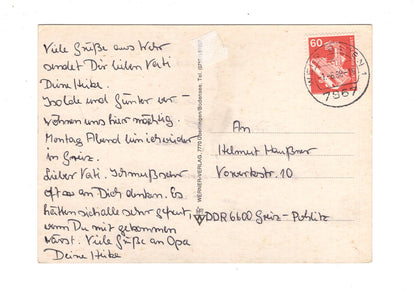 Viele Grüße aus Wehr
sendet Dir lieben Vati
Deine Heike.
Isolde und Günter ver-
wöhnen uns hier mächtig.
Montag Abend bin ich wieder
in Greiz.
Lieber Vati. Ich muß sehr
oft an Dich denken. Es
hätten sich alle sehr gefreut,
wenn Du mit gekommen
wärst. Viele Grüße an Opa
Deine Heike
WERNER-VERLAG, 7770 Überlingen/Bodensee, Tel.
60
7967
An
Helmut Haußner
Vorwerkstr. 10
DDR 6600 Greiz-Pohlitz